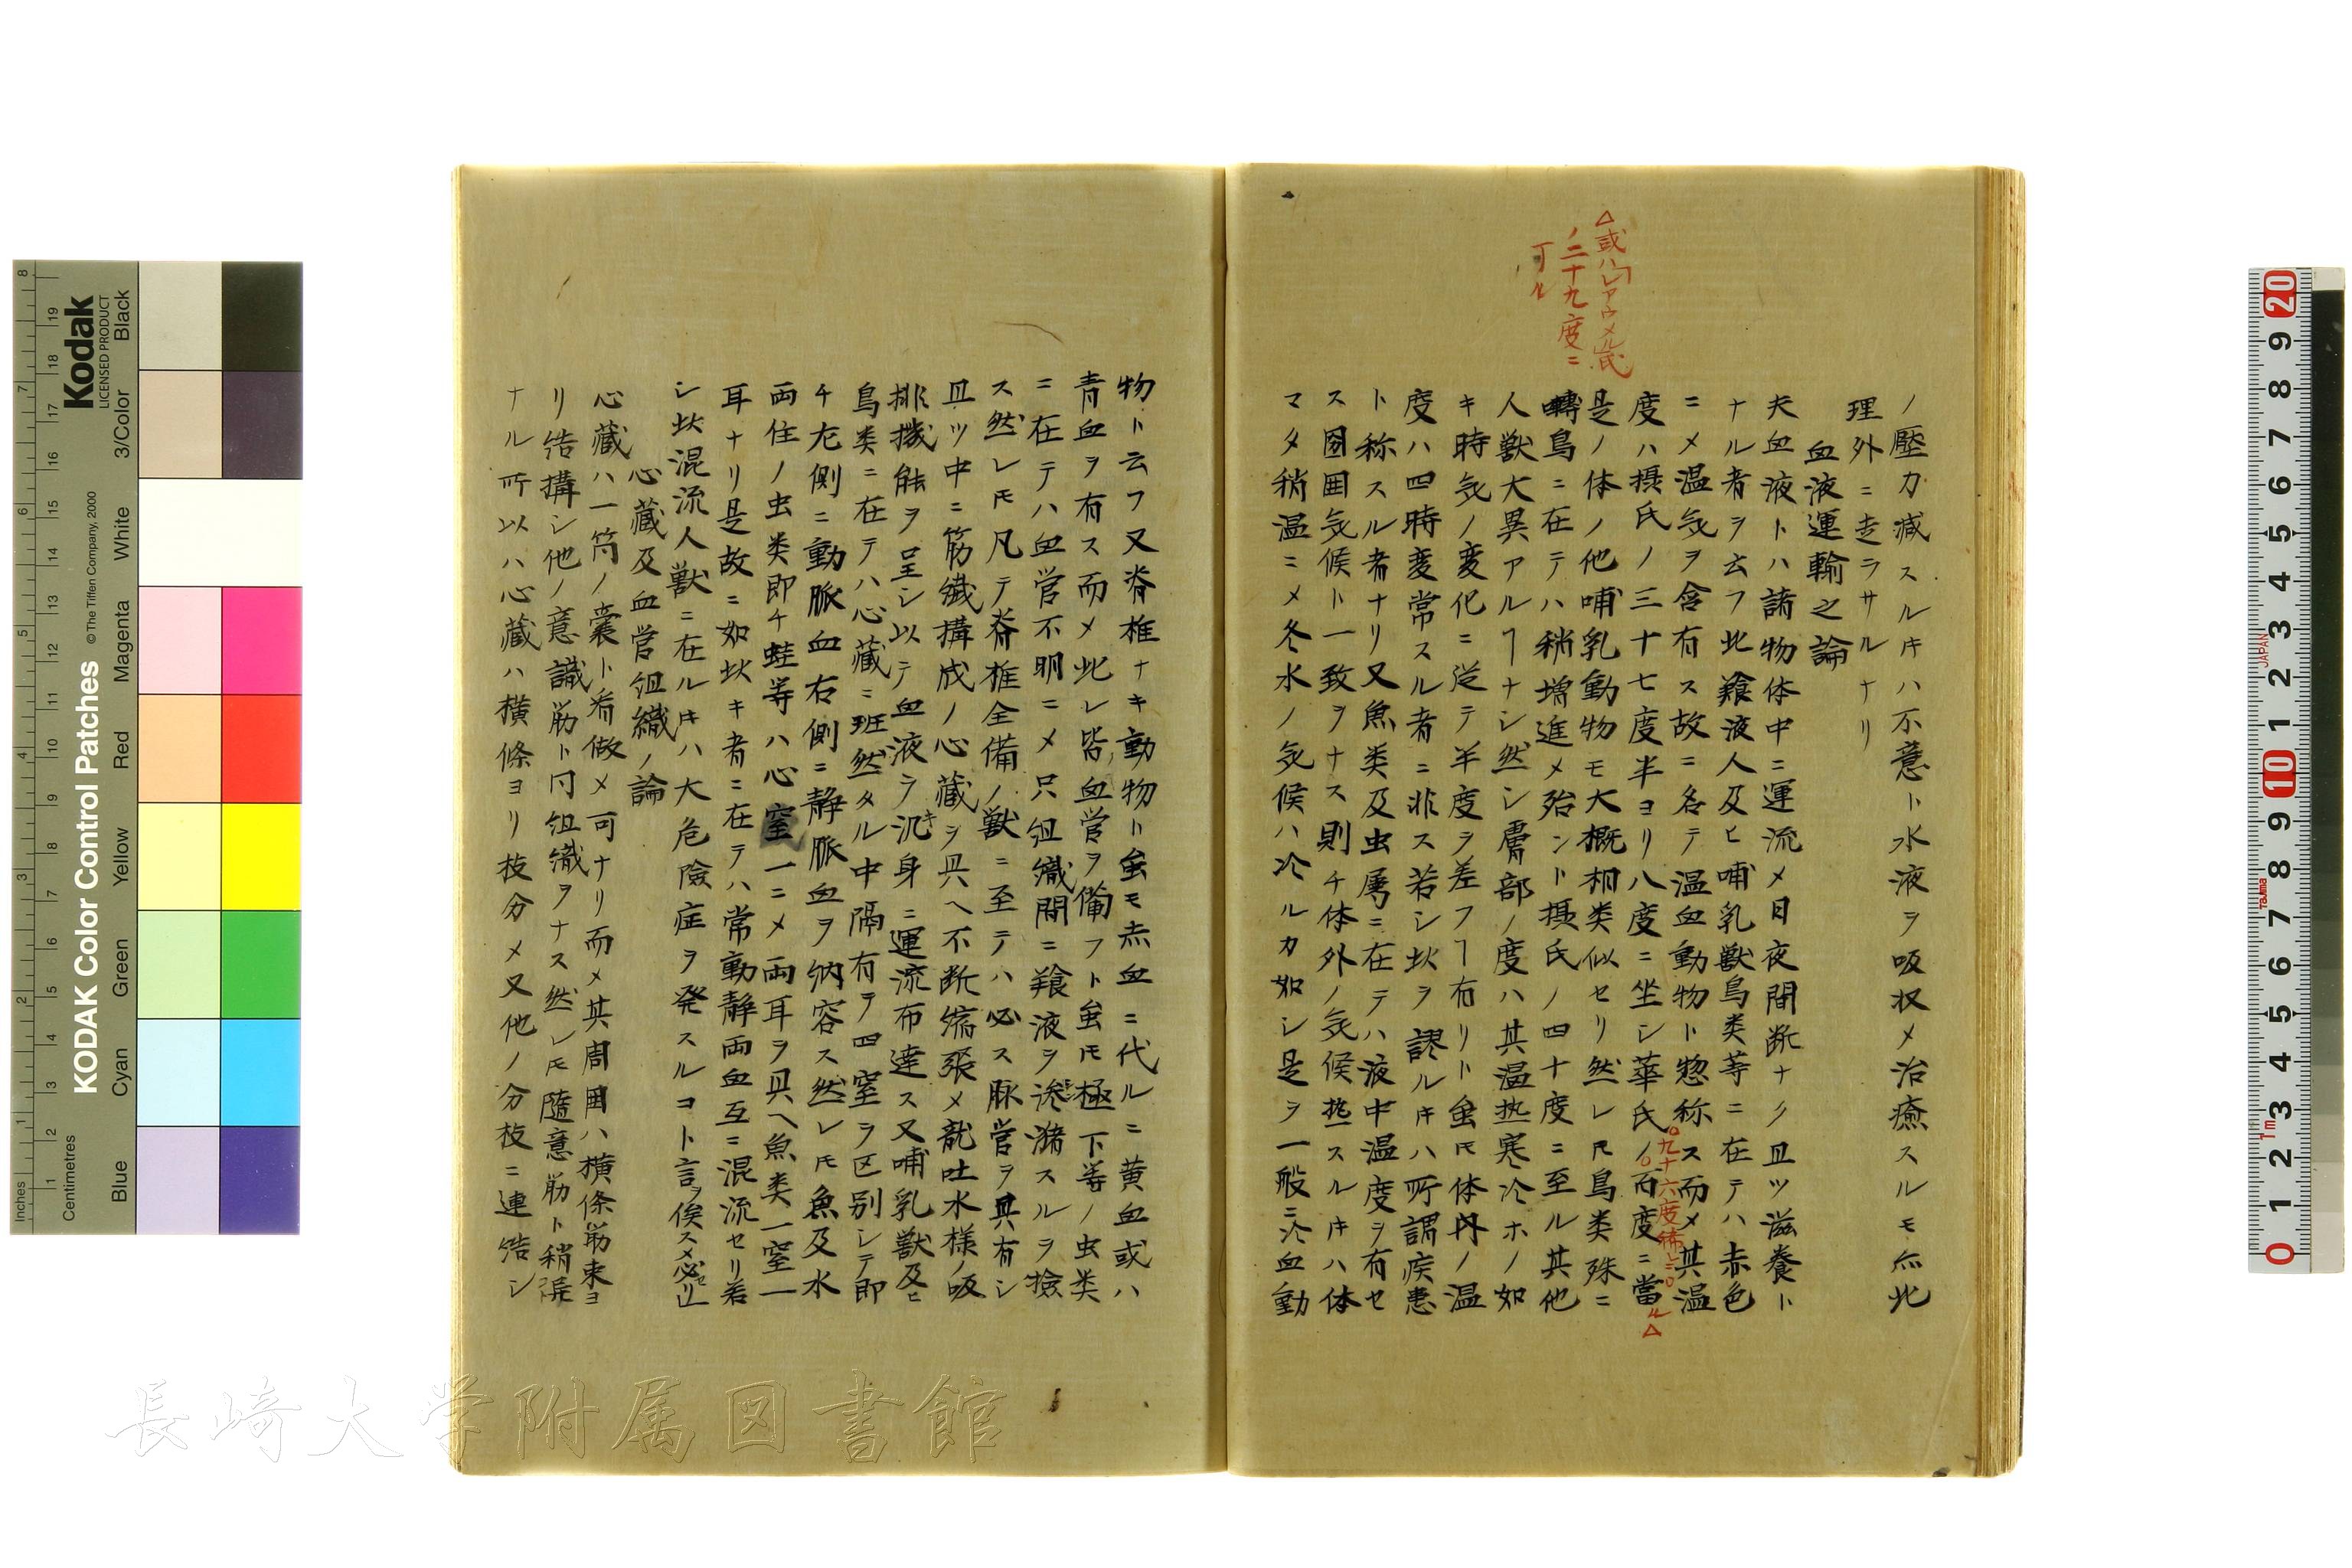 ノ壓力减スル𪜈ハ不意ト水液ヲ吸収メ治癒スルモ亦此
理外ニ走ラサルナリ
血液運輸之論
夫血液トハ諸物体中ニ運流メ日夜間断ナク且ツ滋養ト
ナル者ヲ云フ此養液人及ヒ哺乳獣鳥类等ニ在テハ赤色
ニメ温気ヲ含有ス故ニ名テ温血動物ト惣称ス而メ其温
度ハ摂氏ノ三十七度半ヨリ八度ニ坐シ華氏ノ百度ニ當ル△
九十六度
△或ハレアウメル氏
ノ二十九度ニ
可ル
是ノ体ノ他哺乳動物モ大概相类似セリ然レ𪜈鳥类殊ニ
轉鳥ニ在テハ稍増進メ殆ント摂氏ノ四十度ニ至ル其他
人獣大異アルヿナシ然シ膚部ノ度ハ其温热寒冷ホノ如
キ時気ノ変化ニ従テ半度ヲ差フヿ有リト虽𪜈体内ノ温
度ハ四時変常スル者ニ非ス若シ此ヲ謬ル𪜈ハ所謂疾患
ト称スル者ナリ又魚类及虫属ニ在テハ液中温度ヲ有セ
ス圍囲気候ト一致ヲナス則チ体外ノ気候热スル𪜈ハ体
マタ稍温ニメ冬水ノ気候ハ冷ルカ如シ是ヲ一般ニ冷血動
物ト云フ又脊椎ナキ動物ト虽モ赤血ニ代ルニ黄血或ハ
青血ヲ有ス而メ此レ皆血管ヲ備フト虽𪜈極下等ノ虫类
ニ在テハ血管不明ニメ只组織間ニ養液ヲ滲潴スルヲ撿
ス然レ𪜈凡テ脊椎全備ノ獣ニ至テハ必ス脉管ヲ具有シ
且ツ中ニ筋繊搆成ノ心藏ヲ具ヘ不断縮張メ龍吐水様ノ吸
排機能ヲ呈シ以テ血液ヲ汎身ニ運流布達ス又哺乳獣及ヒ
鳥类ニ在テハ心藏ニ班然タル中隔有テ四室ヲ区别シテ即
チ左側ニ動脈血右側ニ静脈血ヲ納容ス然レ𪜈魚及水
両住ノ虫类即チ蛙等ハ心室一ニメ両耳ヲ具ヘ魚类一室一
耳ナリ是故ニ如此キ者ニ在テハ常動静両血互ニ混流セリ若
シ此混流人獣ニ在ル𪜈ハ大危險症ヲ発スルコト言ヲ俟ス必セリ
心藏及血管组織ノ論
心藏ハ一箇ノ嚢ト看做メ可ナリ而メ其周囲ハ横條筋束ヨ
リ结搆シ他ノ意識筋ト同组織ヲナス然レ𪜈隨意筋ト稍异
ナル所以ハ心藏ハ横條ヨリ枝分メ又他ノ分枝ニ連结シ
Kodak
LICENSED PRODUCT
KODAK Color Control Patches
© The Tiffen Company, 2000
Inches
Centimetres
Blue Cyan Green Yellow Red Magenta White 3/Color Black
JAPAN
Tajima
長崎大学附属図書館